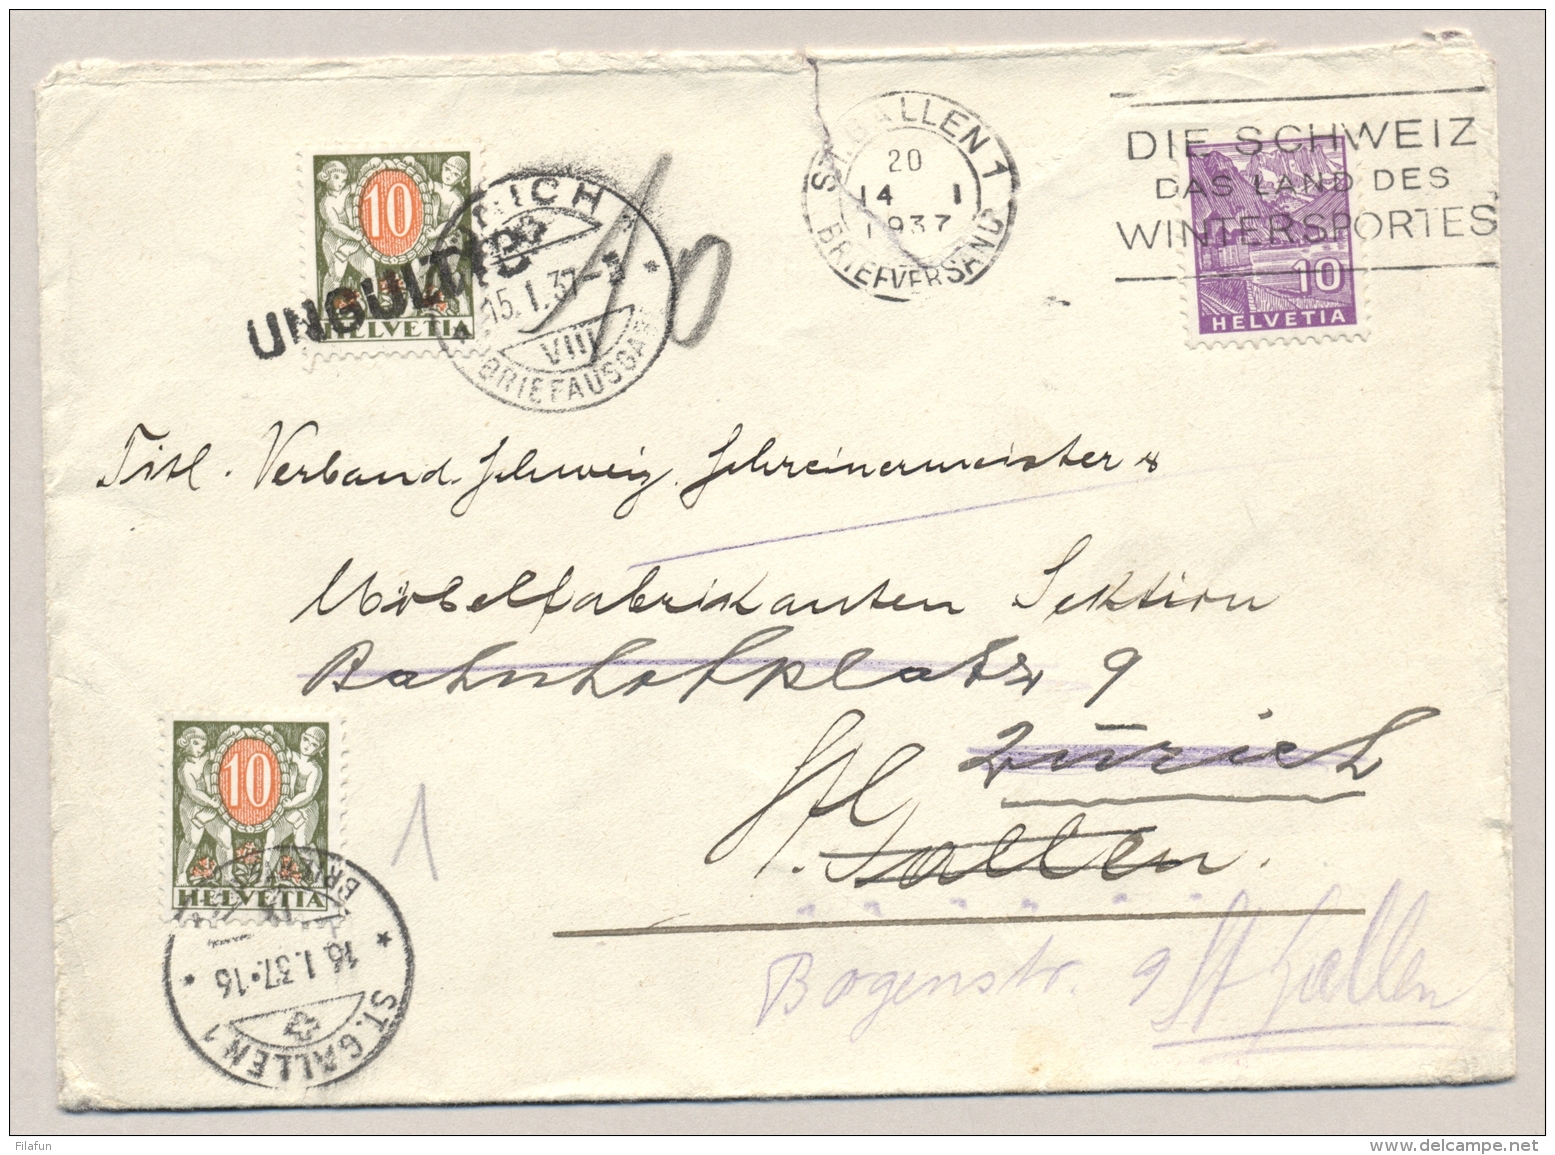 ST. GALLEN 1
20
14 I
1937
BRIEFVERSAND
DIE SCHWEIZ
DAS LAND DES
WINTERSPORTES
10
HELVETIA
10
HELVETIA
UNGÜLTIG
15. I. 37
VIII
BRIEFAUSGABE
10
Titl. Verband Schweiz. Schreinermeister &
Möbelfabrikanten Sektion
Bahnhofplatz 9
Zürich
St. Gallen.
Bogenstr. 9 St Gallen
1
10
HELVETIA
16. I. 37 - 16
ST. GALLEN 1
Filafun